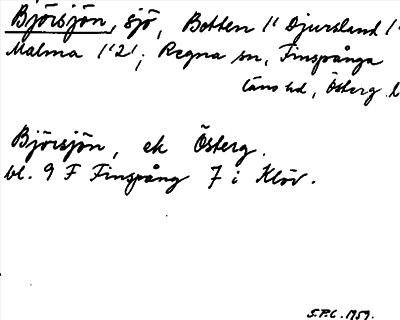 Björsjön, sjö, Botten 1' Djursland 1'
Malma 1'2'; Regna sn, Finspånga
läns hd, Österg. l
Björsjön, ek Österg.
bl. 9 F Finspång 7 i Klöv.
S.P.C. 1959.